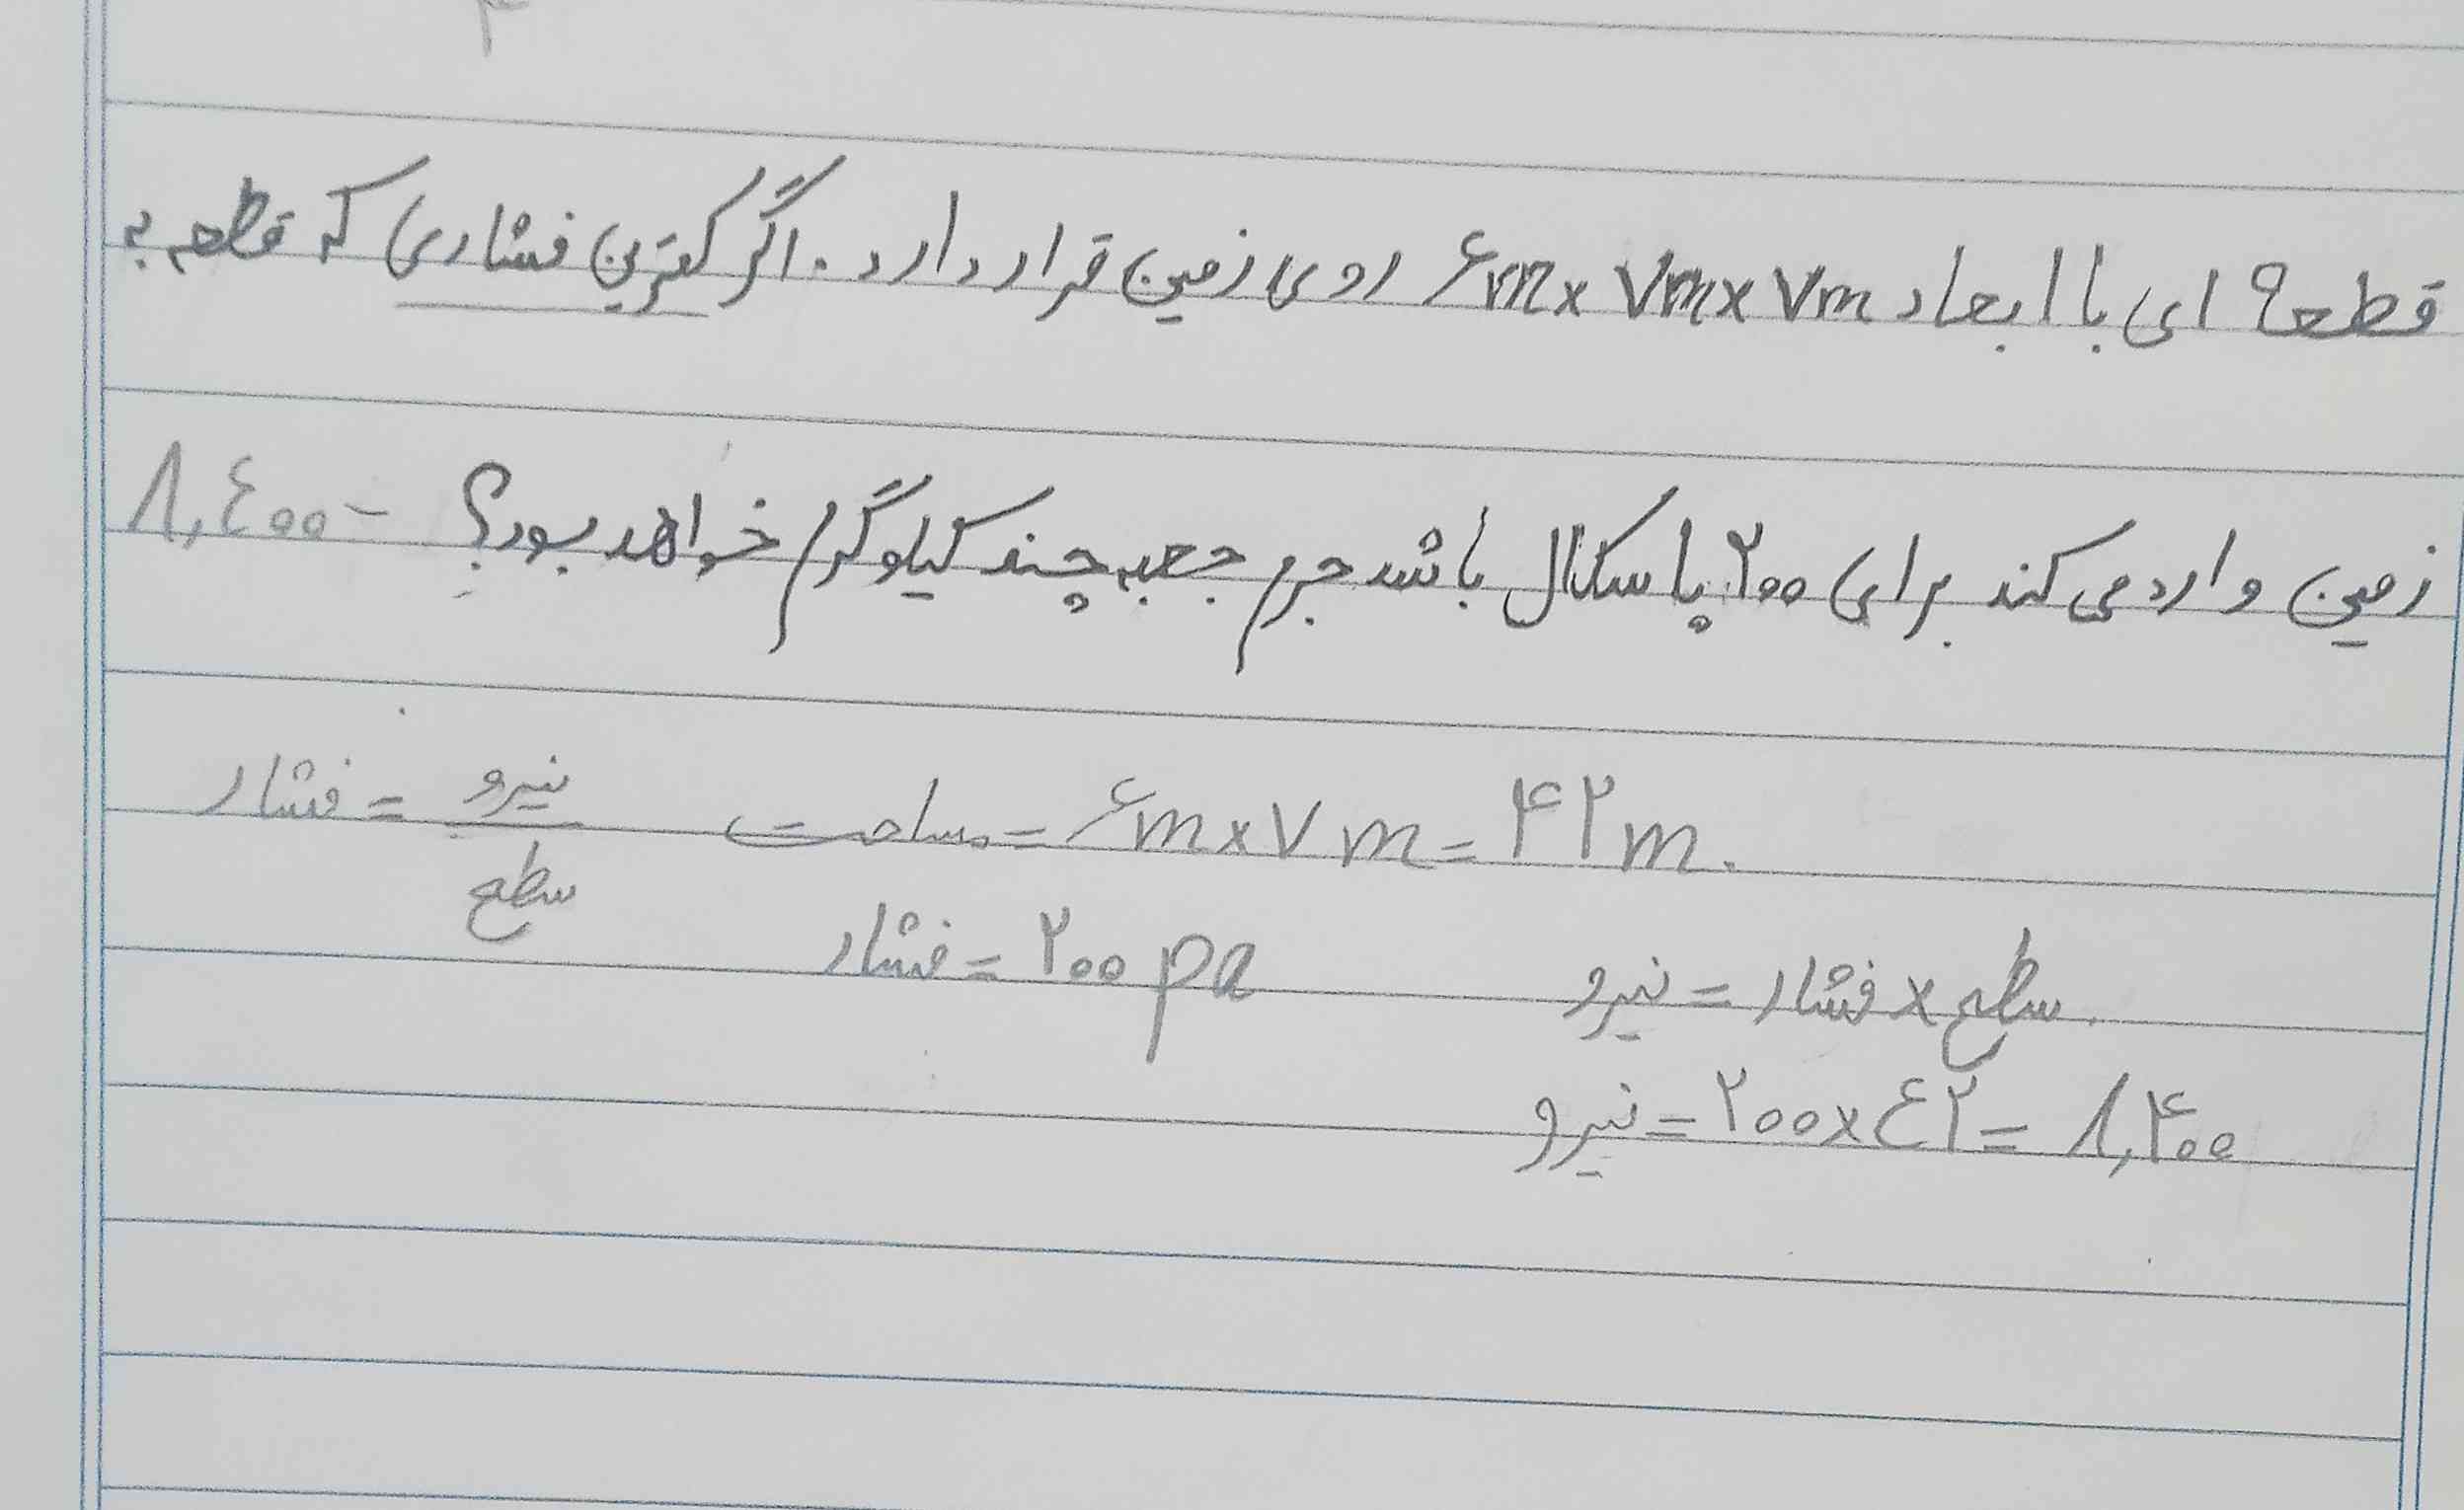 قطعه ای با ابعاد ۶m x ۷m x ۷m روی زمین قرار دارد. اگر کمترین فشاری که قطعه به
زمین وارد می کند برای ۲۰۰ پاسکال باشد جرم جعبه چند کیلوگرم خواهد بود؟ - ۸,٤۰۰
فشار = نیرو / سطح مساحت = ۶m x ۷m = ۴۲m.
فشار = ۲۰۰ pa نیرو = فشار x سطح.
نیرو = ۲۰۰ x ٤۲ = ۸,۴۰۰